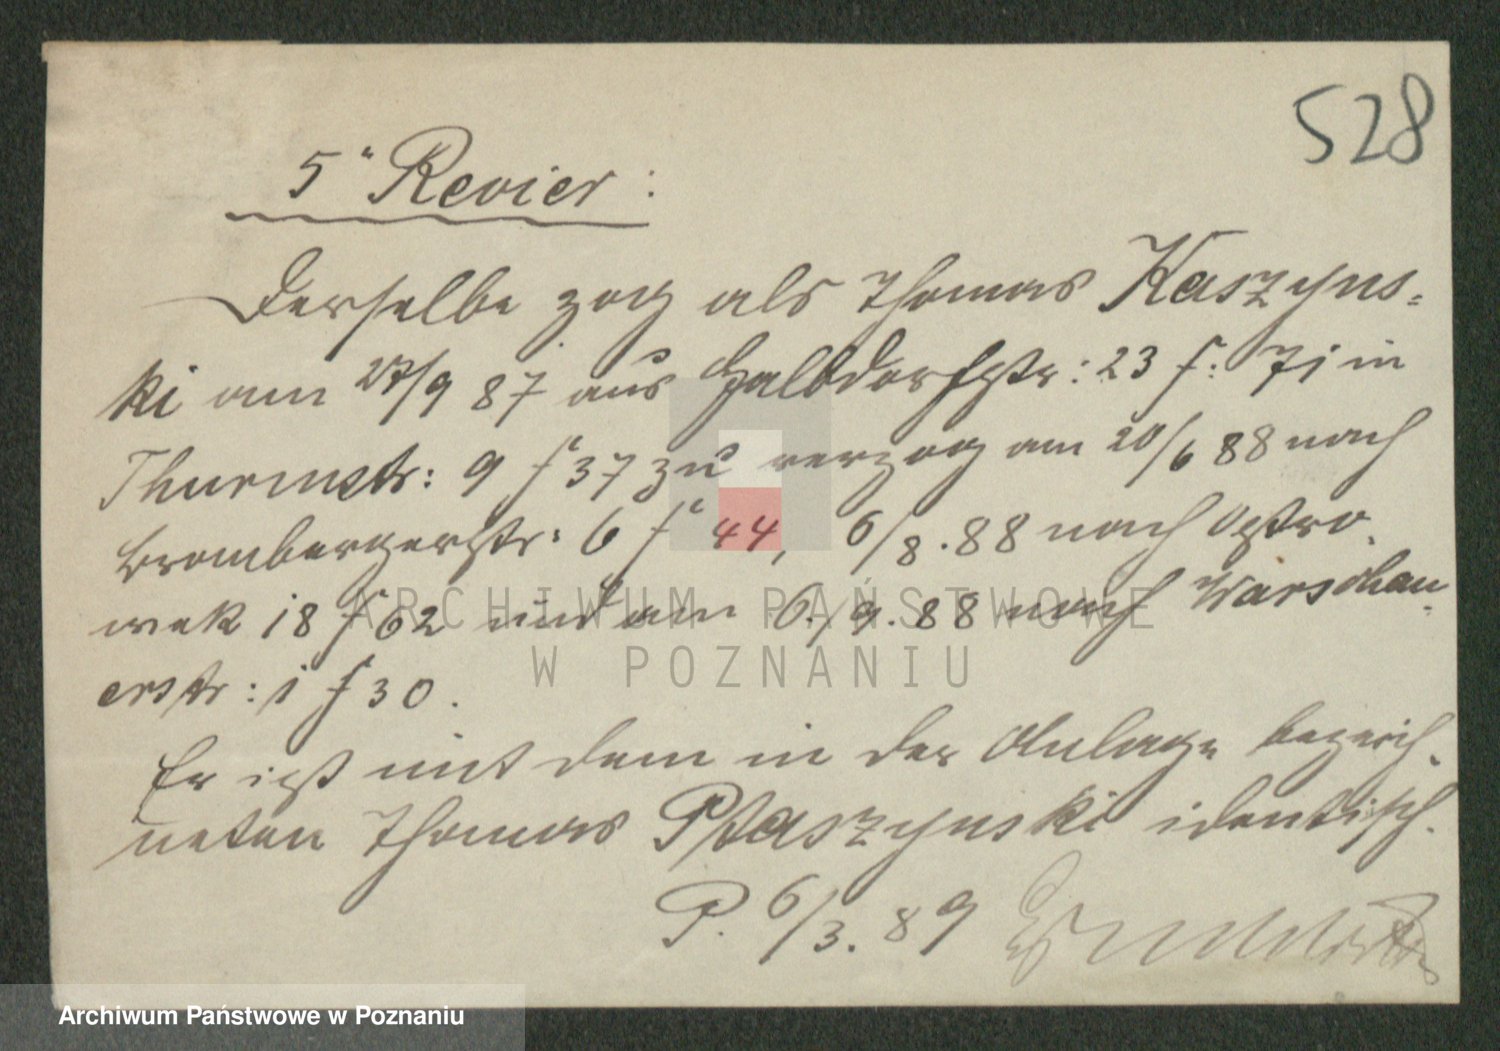 528
5" Revier:
Derselbe zog als Thomas Kaszyns=
ki am 27/9 87 aus Halbdorfstr: 23 f: 71 in
Thurmstr: 9 f 37 zu verzog am 20/6 88 nach
Brombergerstr: 6 f 44, 6/8.88 nach Ostro.
wek 18 f 62 und am 6./9.88 nach Warschau-
erstr: 1 f 30.
Er ist mit dem in der Anlage bezeich.
neten Thomas Ptaszynski identisch.
P. 6/3.89
ARCHIWUM PAŃSTWOWE
W POZNANIU
Archiwum Państwowe w Poznaniu